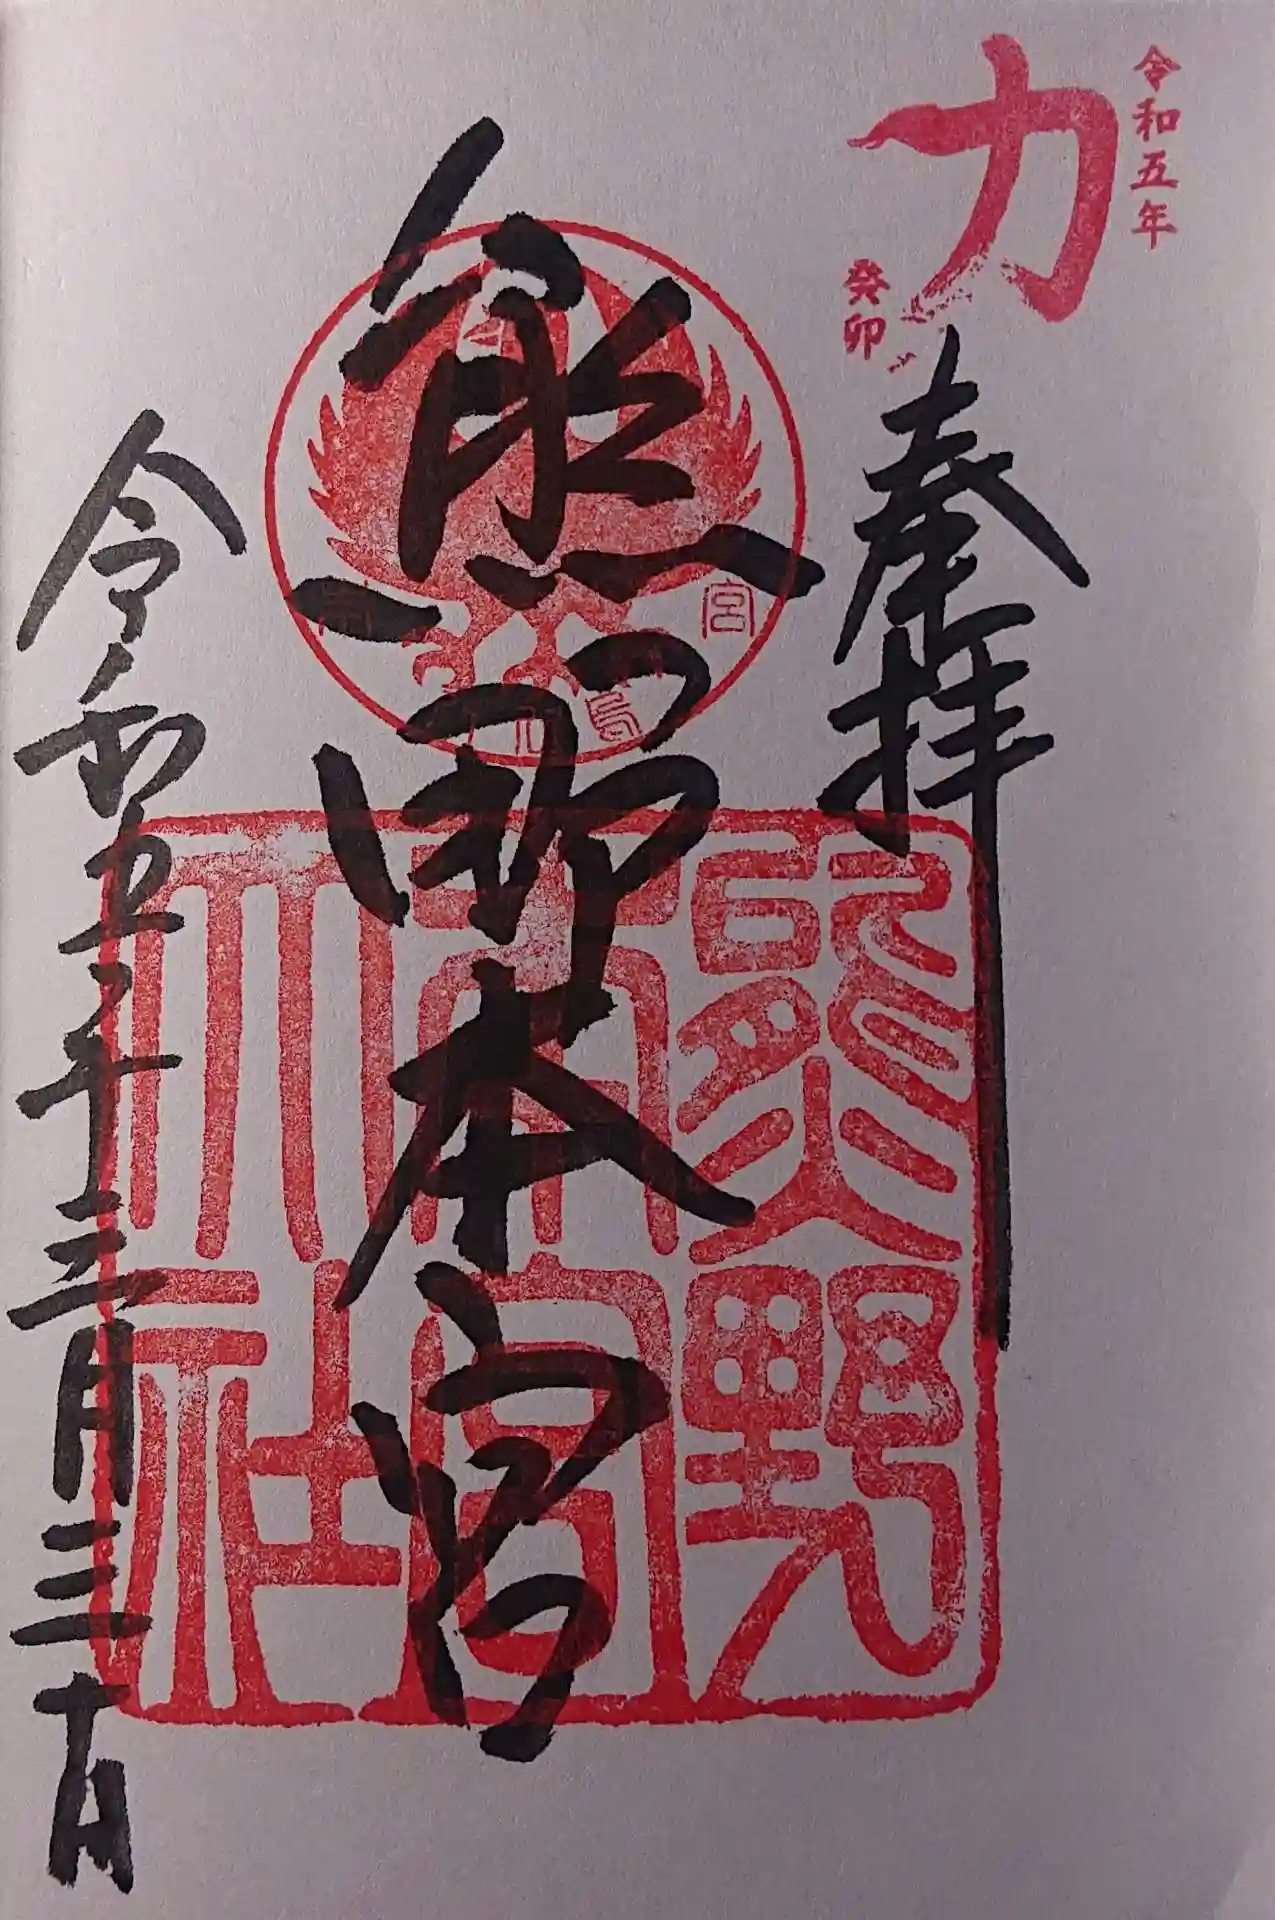 令和五年
力
癸卯
奉拝
熊野本宮
熊野
本宮
大社
宮
令和五年十二月三十日